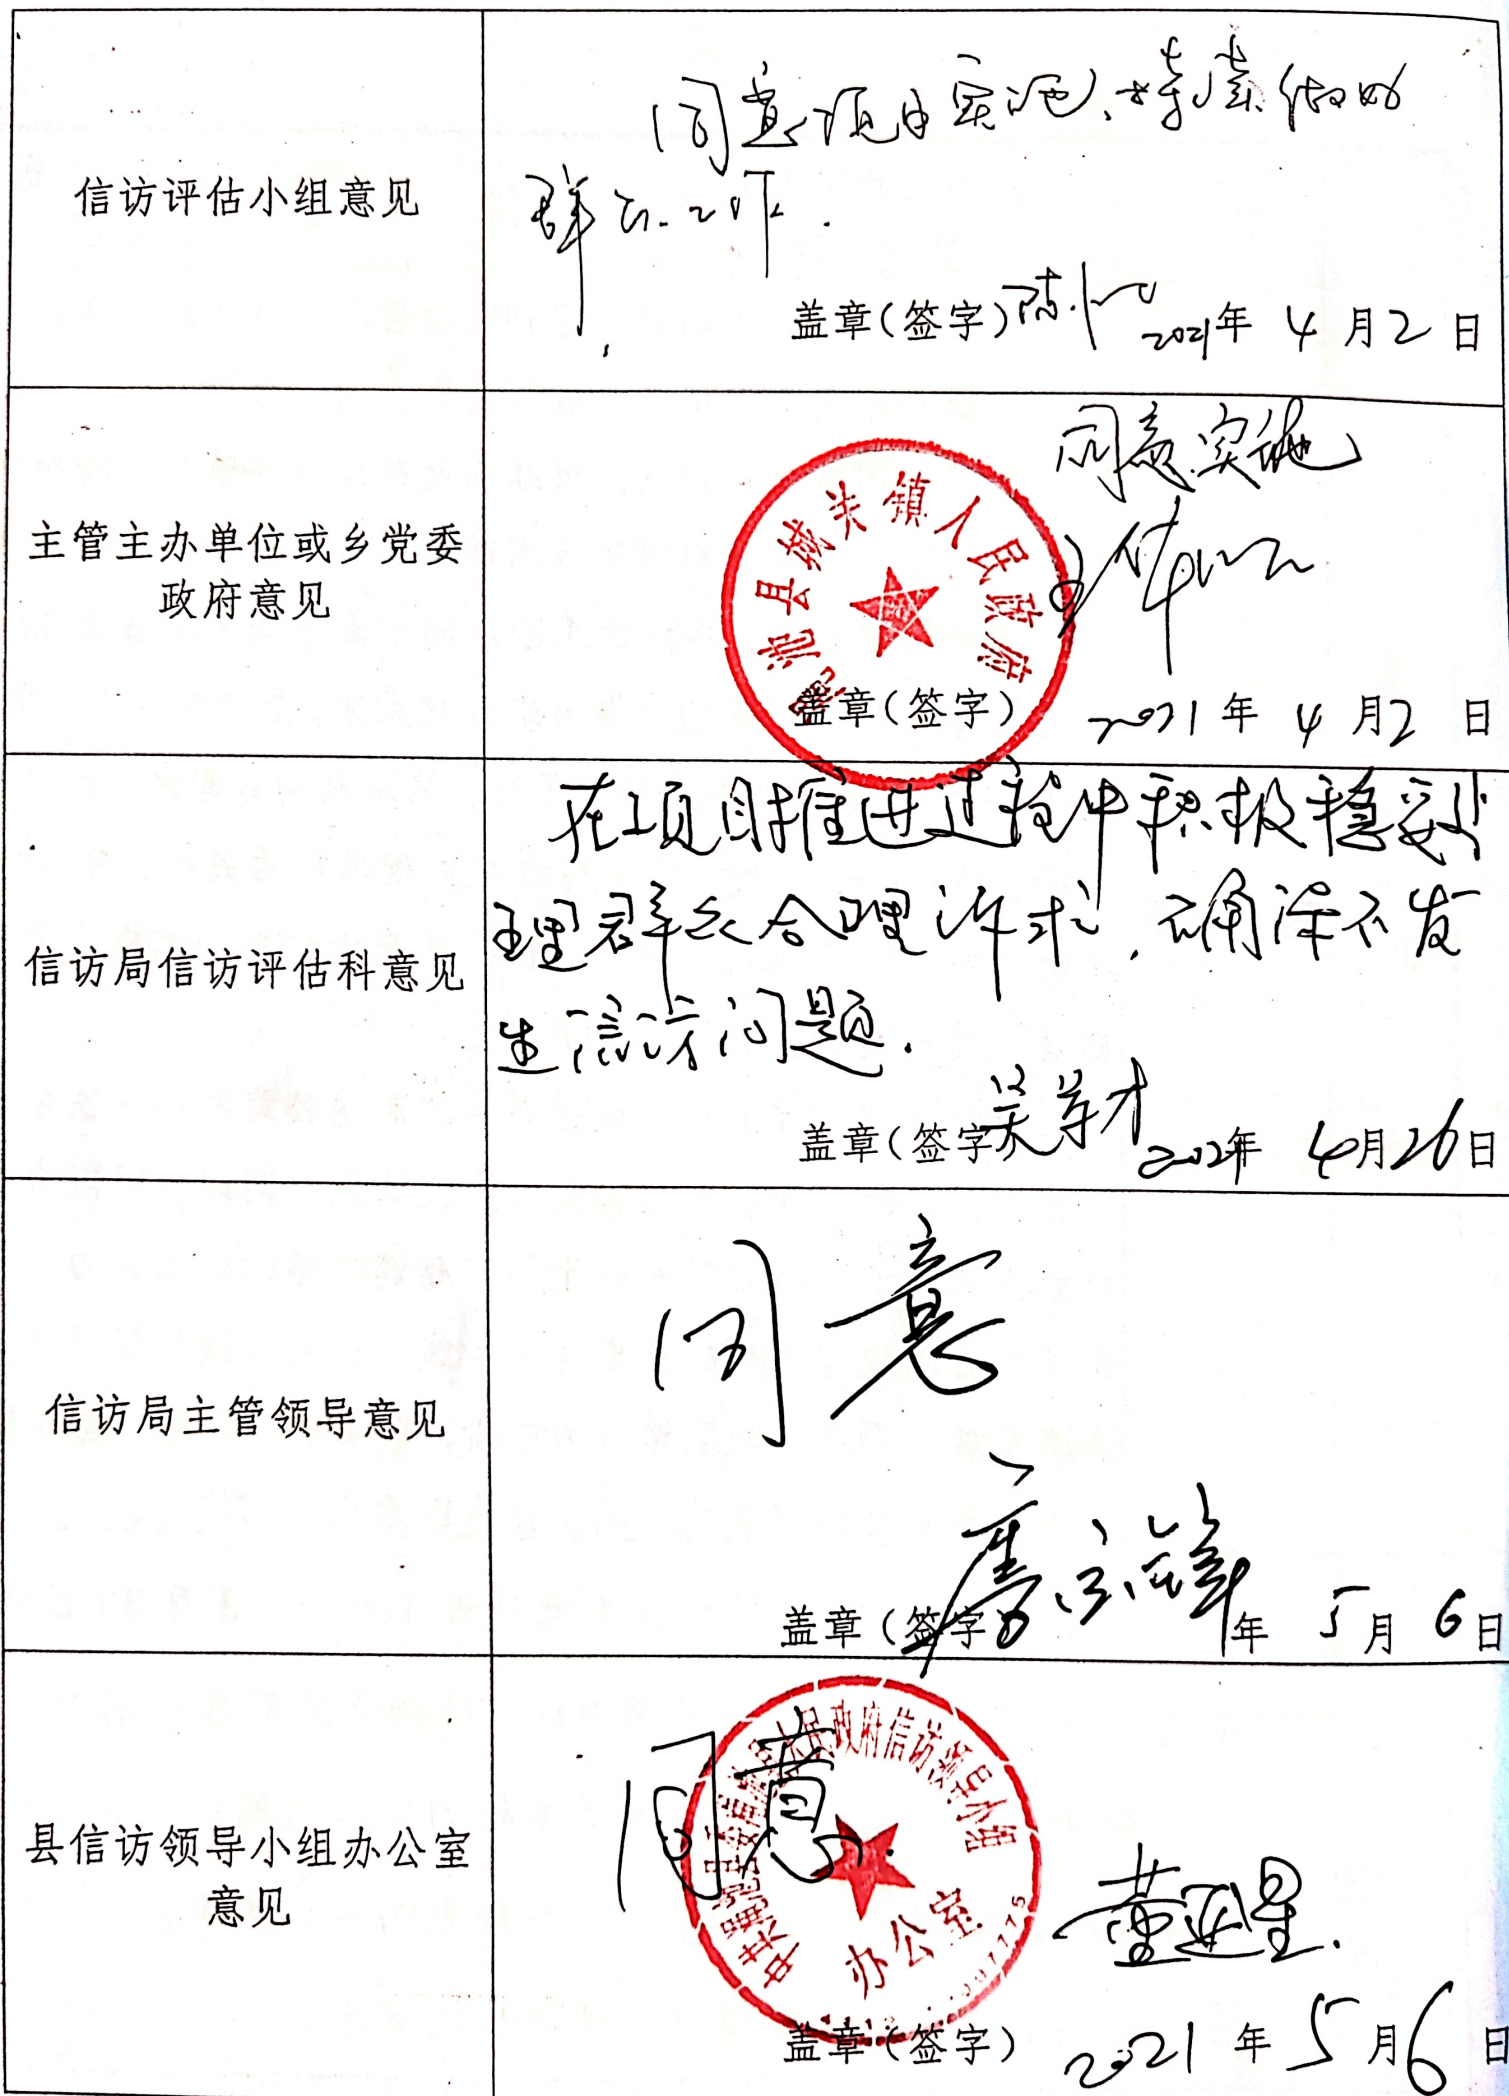 信访评估小组意见
同意项目实施,持续做好
群众工作.
盖章(签字) 2021年 4月2日
主管主办单位或乡党委
政府意见
同意实施
黾池县城关镇人民政府
盖章(签字) 2021年 4月2日
信访局信访评估科意见
在项目推进过程中积极稳妥处
理群众合理诉求,确保不发
生信访问题.
盖章(签字 2021年 4月26日
信访局主管领导意见
同意
盖章(签字) 年 5月 6日
县信访领导小组办公室
意见
同意.
人民政府信访领导小组
办公室
董亚星.
盖章(签字) 2021年 5月6日